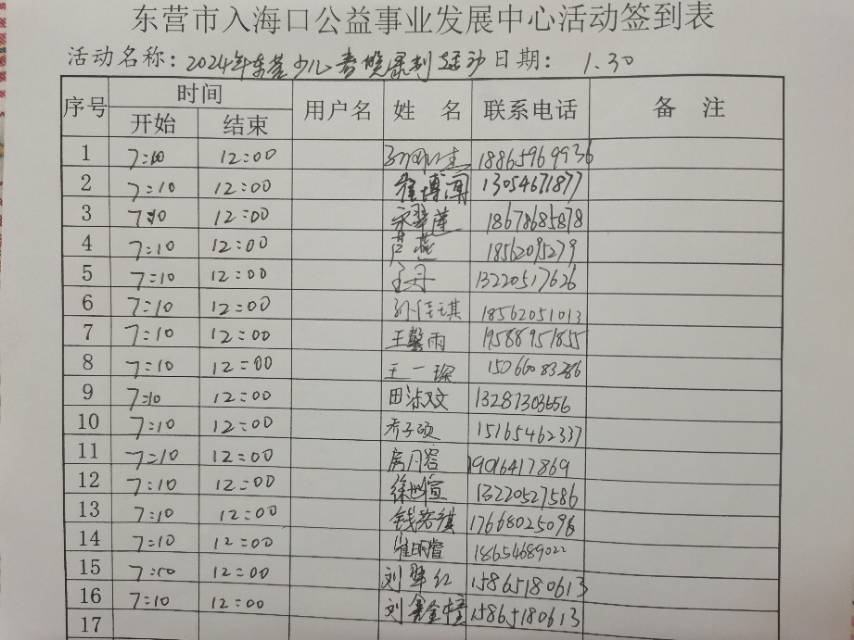 东营市入海口公益事业发展中心活动签到表
活动名称：2024年东营少儿春晚录制活动日期： 1.30
序号 时间 用户名 姓 名 联系电话 备 注
开始 结束
1 7:10 12:00 18865969936
2 7:10 12:00 崔博闻 13054671877
3 7:10 12:00 宋翠莲 18678685878
4 7:10 12:00 芦燕 18562095279
5 7:10 12:00 王丹 13220517626
6 7:10 12:00 孙佳琪 18562051013
7 7:10 12:00 王馨雨 19588951855
8 7:10 12:00 王一琛 15066083286
9 7:10 12:00 田淑文 13287303656
10 7:10 12:00 乔子硕 15165462337
11 7:10 12:00 房月容 19016417869
12 7:10 12:00 徐世恒 13220527586
13 7:10 12:00 钱若祺 17668025096
14 7:10 12:00 18654689022
15 7:00 12:00 刘翠红 15865180613
16 7:10 12:00 刘鑫橦 15865180613
17